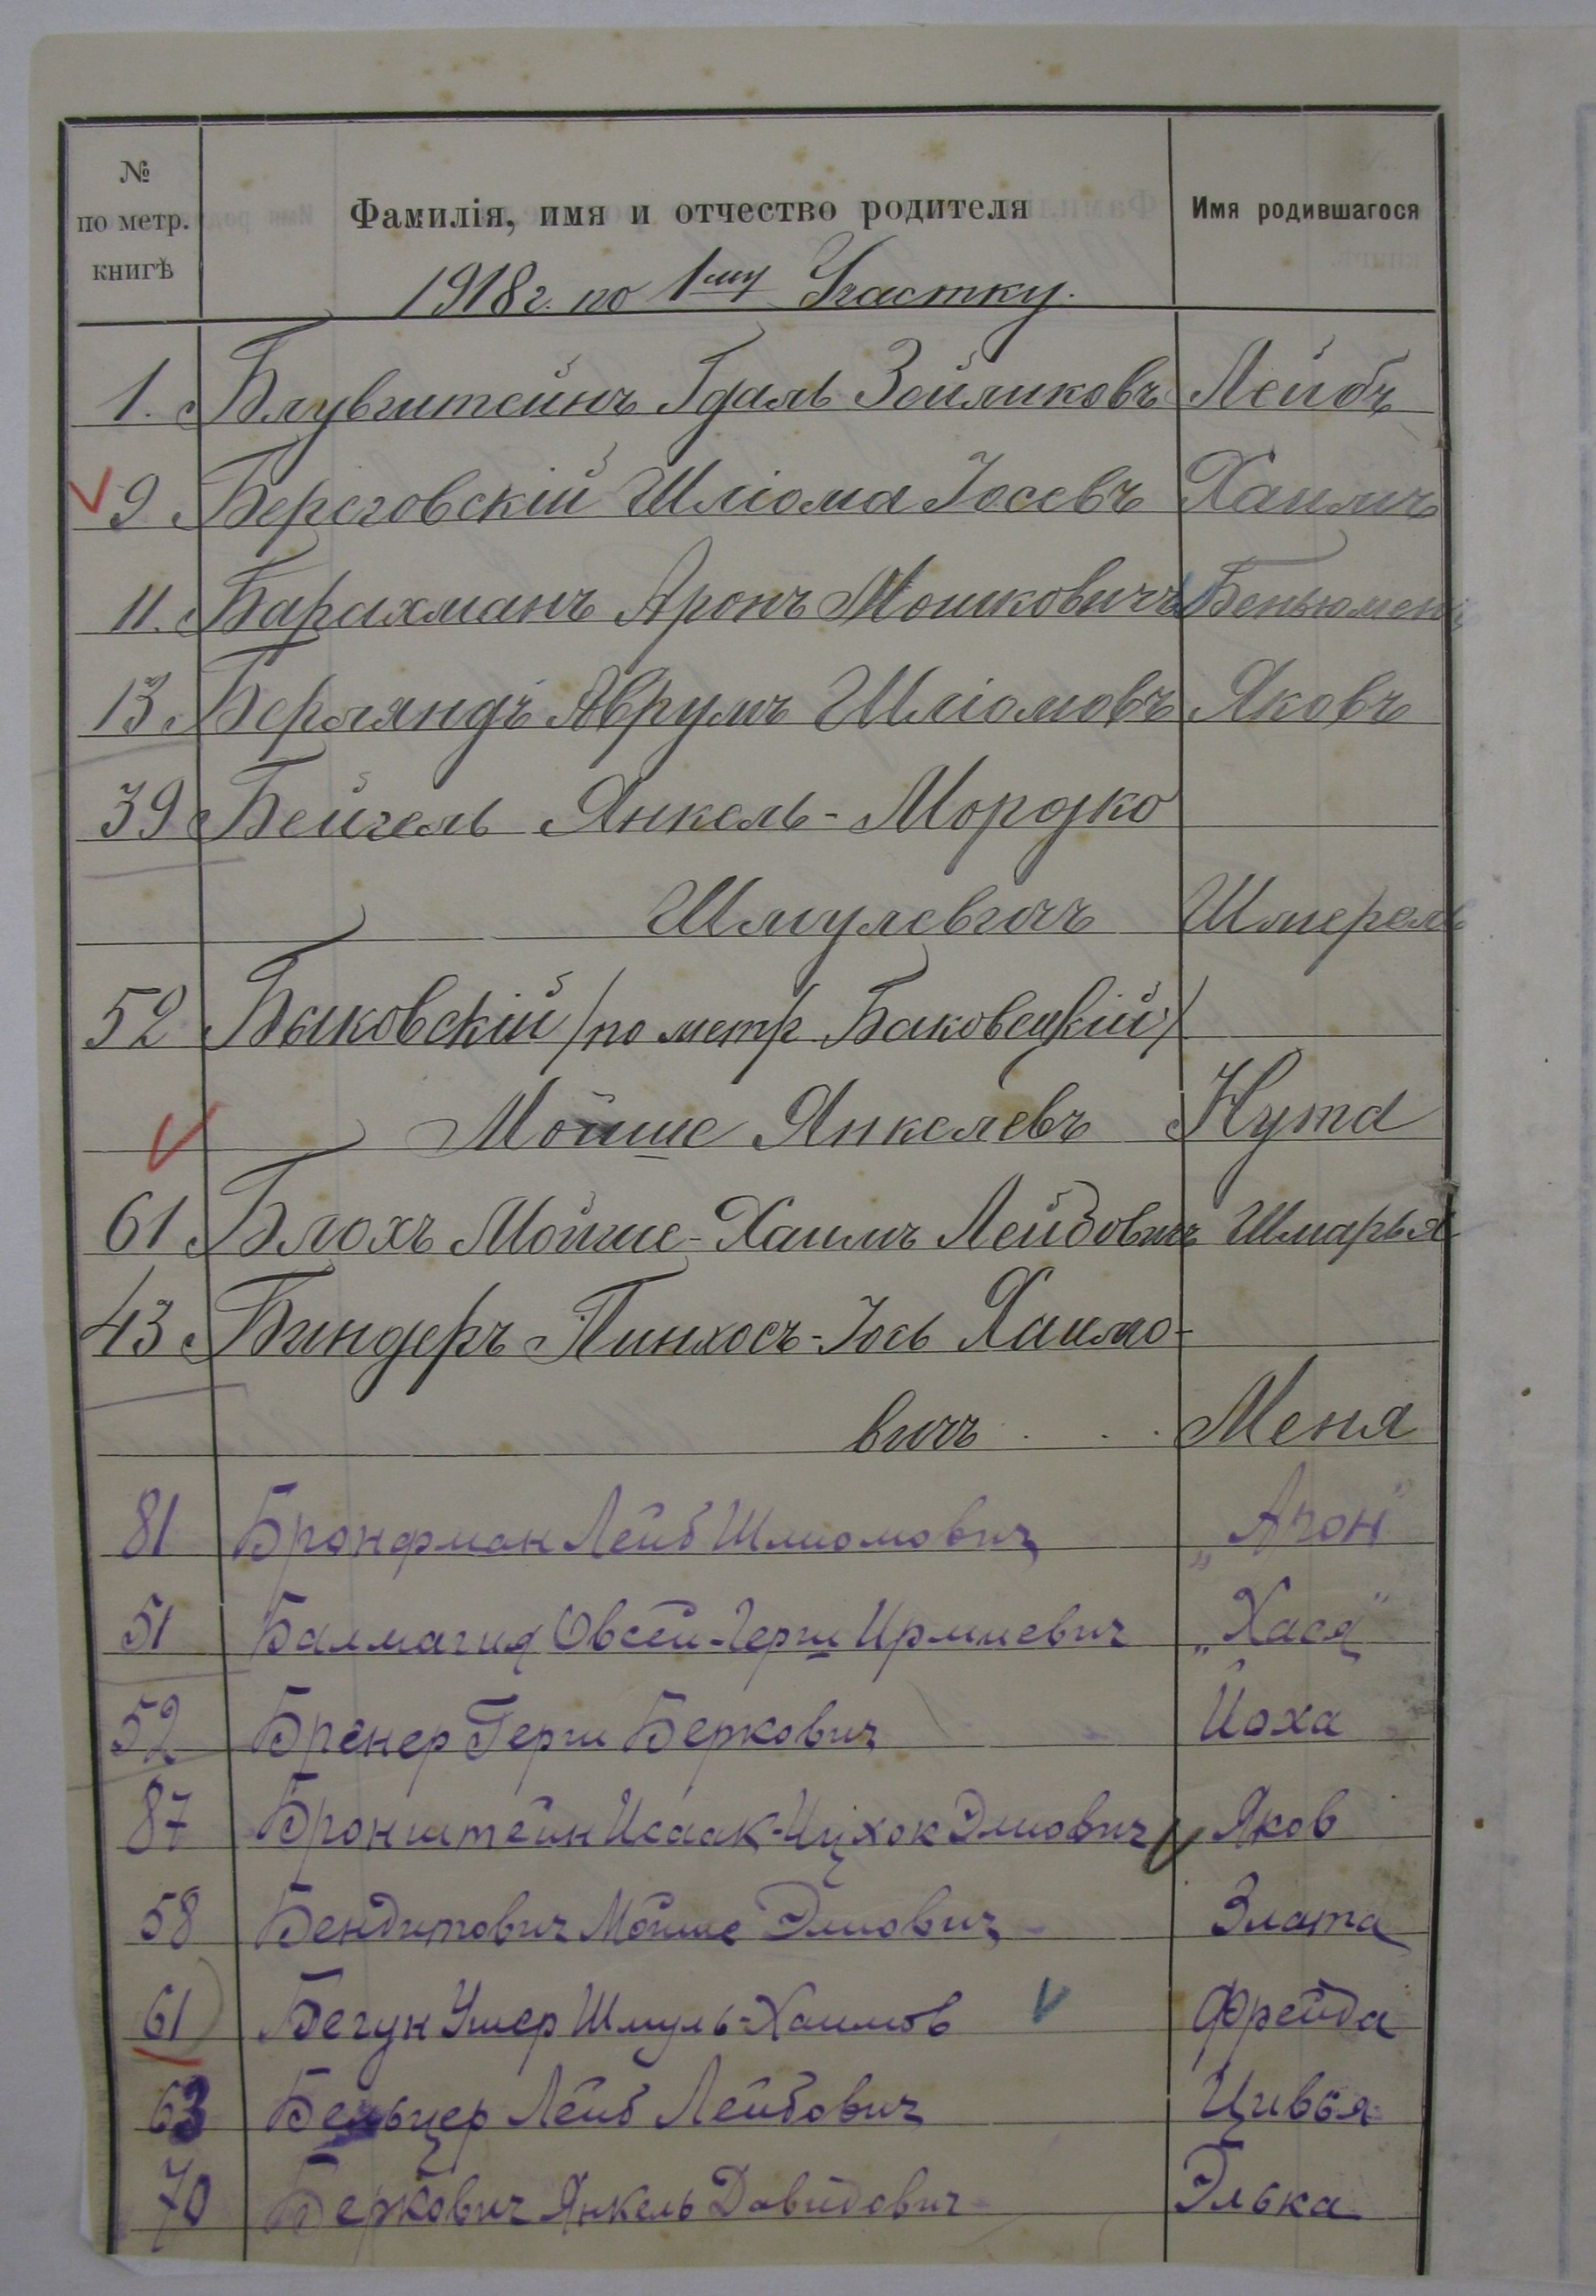 №
по метр.
книгѣ
Фамилія, имя и отчество родителя
Имя родившагося
1918 г. по 1му Участку.
1. Блувштейнъ Гдаль Зейликовъ Лейбъ
9 Береговскій Шліома Іосевъ Хаимъ
11. Барахманъ Аронъ Мошковичъ Беньюменъ
13. Берляндъ Аврумъ Шліомовъ Яковъ
39 Бейгель Янкель-Мордко
Шмулевичъ Шмерель
52 Быковскій /по метр Баковецкій/
Мойше Янкелевъ Нута
61 Блохъ Мойше-Хаимъ Лейбовичъ Шмарья
43 Биндеръ Пинхосъ-Іось Хаимо-
вичъ . . . Меня
81 Бронфман Лейб Шлиомович „Арон"
51 Балмагия Овсей-Герш Ирмиевич „Хася"
52 Бренер Герш Беркович Йоха
87 Бронштейн Исаак-Ицхок Элиович Яков
58 Бендитович Мойше Элиович Злата
61 Бегун Ушер Шмуль-Хаимов Фрейда
63 Бельцер Лейб Лейбович Цивья
70 Беркович Янкель Давидович Элька